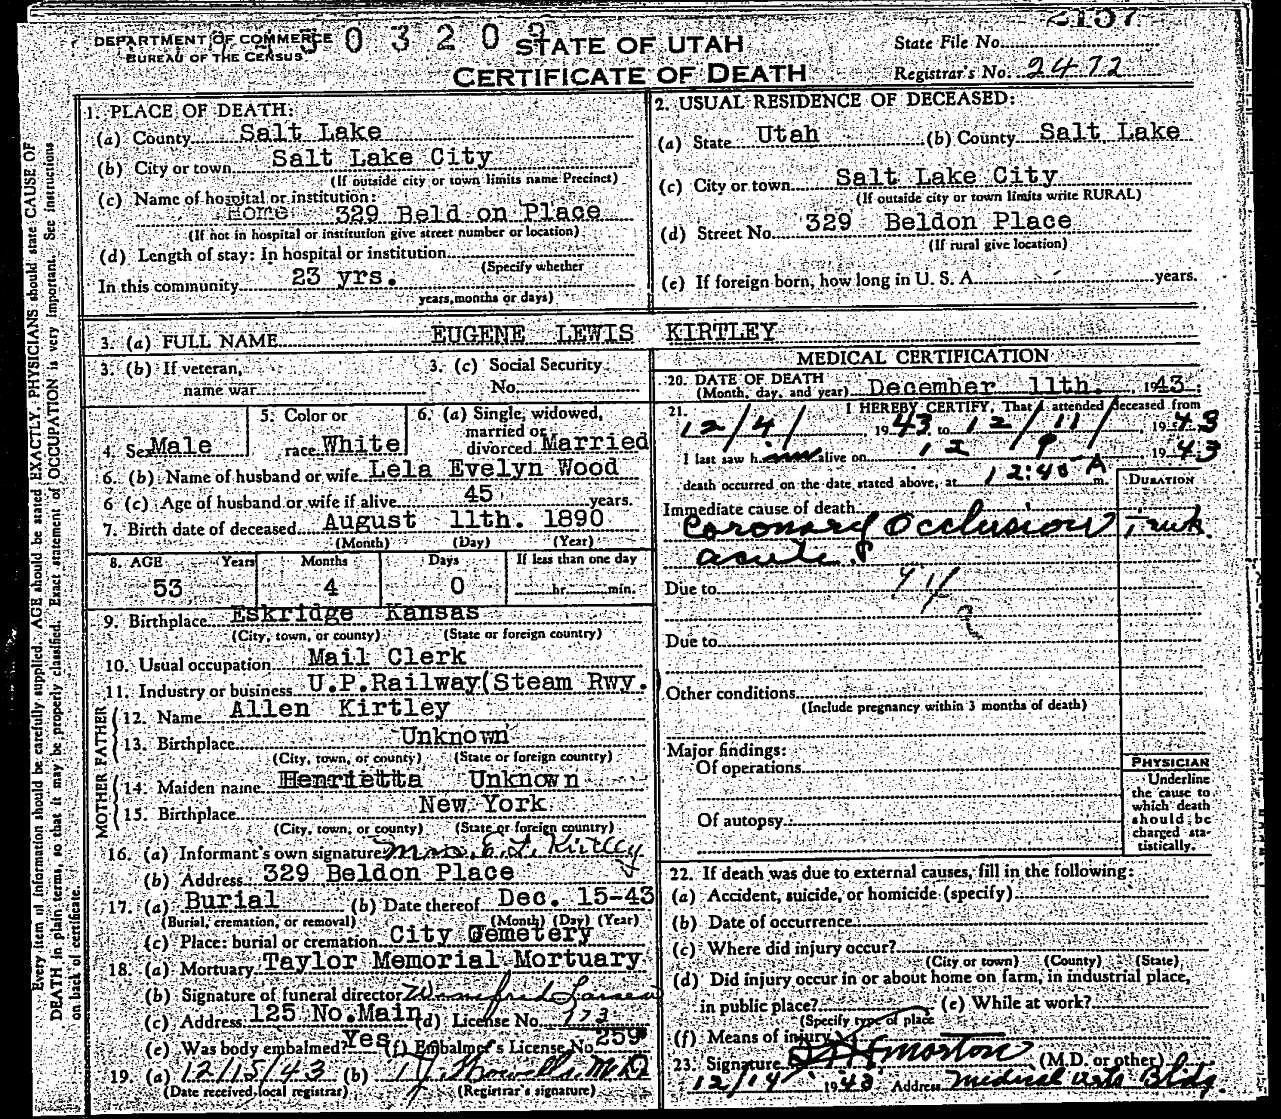 DEPARTMENT OF COMMERCE
BUREAU OF THE CENSUS
303209
STATE OF UTAH
CERTIFICATE OF DEATH
State File No. 2157
Registrar's No. 2472
Every item of information should be carefully supplied. AGE should be stated EXACTLY. PHYSICIANS should state CAUSE OF
DEATH in plain terms, so that it may be properly classified. Exact statement of OCCUPATION is very important. See instructions
on back of certificate.
1. PLACE OF DEATH:
(a) County Salt Lake
(b) City or town Salt Lake City
(If outside city or town limits name Precinct)
(c) Name of hospital or institution:
Home 329 Beld on Place
(If not in hospital or institution give street number or location)
(d) Length of stay: In hospital or institution
(Specify whether
In this community 23 yrs.
years, months or days)
2. USUAL RESIDENCE OF DECEASED:
(a) State Utah (b) County Salt Lake
(c) City or town Salt Lake City
(If outside city or town limits write RURAL)
(d) Street No. 329 Beldon Place
(If rural give location)
(e) If foreign born, how long in U. S. A. years.
3. (a) FULL NAME EUGENE LEWIS KIRTLEY
3. (b) If veteran,
name war
3. (c) Social Security
No.
4. Sex Male
5. Color or
race White
6. (a) Single, widowed,
married or
divorced Married
6. (b) Name of husband or wife Lela Evelyn Wood
6 (c) Age of husband or wife if alive 45 years.
7. Birth date of deceased August 11th. 1890
(Month) (Day) (Year)
8. AGE Years Months Days If less than one day
53 4 0 hr. min.
9. Birthplace Eskridge Kansas
(City, town, or county) (State or foreign country)
10. Usual occupation Mail Clerk
11. Industry or business U.P.Railway(Steam Rwy.)
FATHER
12. Name Allen Kirtley
13. Birthplace Unknown
(City, town, or county) (State or foreign country)
MOTHER
14. Maiden name Henrietta Unknown
15. Birthplace New York
(City, town, or county) (State or foreign country)
16. (a) Informant's own signature Mrs. E. L. Kirtley
(b) Address 329 Beldon Place
17. (a) Burial (b) Date thereof Dec. 15-43
(Burial, cremation, or removal) (Month) (Day) (Year)
(c) Place: burial or cremation City Cemetery
18. (a) Mortuary Taylor Memorial Mortuary
(b) Signature of funeral director Winnifred Larsen
(c) Address 125 No.Main (d) License No. 173
(e) Was body embalmed? Yes (f) Embalmer's License No 259
19. (a) 12/15/43 (b) M.D.
(Date received local registrar) (Registrar's signature)
MEDICAL CERTIFICATION
20. DATE OF DEATH
(Month, day, and year) December 11th. 1943.
21. I HEREBY CERTIFY, That I attended deceased from
12/4/ 1943 to 12/11/, 1943
I last saw him alive on 12 9 1943
death occurred on the date stated above, at 12:40 A m.
DURATION
Immediate cause of death
Coronary Occlusion
acute.
Due to 94
Due to
Other conditions
(Include pregnancy within 3 months of death)
Major findings:
Of operations
Of autopsy
PHYSICIAN
Underline
the cause to
which death
should be
charged sta-
tistically.
22. If death was due to external causes, fill in the following:
(a) Accident, suicide, or homicide (specify)
(b) Date of occurrence
(c) Where did injury occur?
(City or town) (County) (State)
(d) Did injury occur in or about home on farm, in industrial place,
in public place? (e) While at work?
(Specify type of place
(f) Means of injury
23. Signature Morton (M.D. or other)
12/14 1943 Address Medical Arts Bldg.